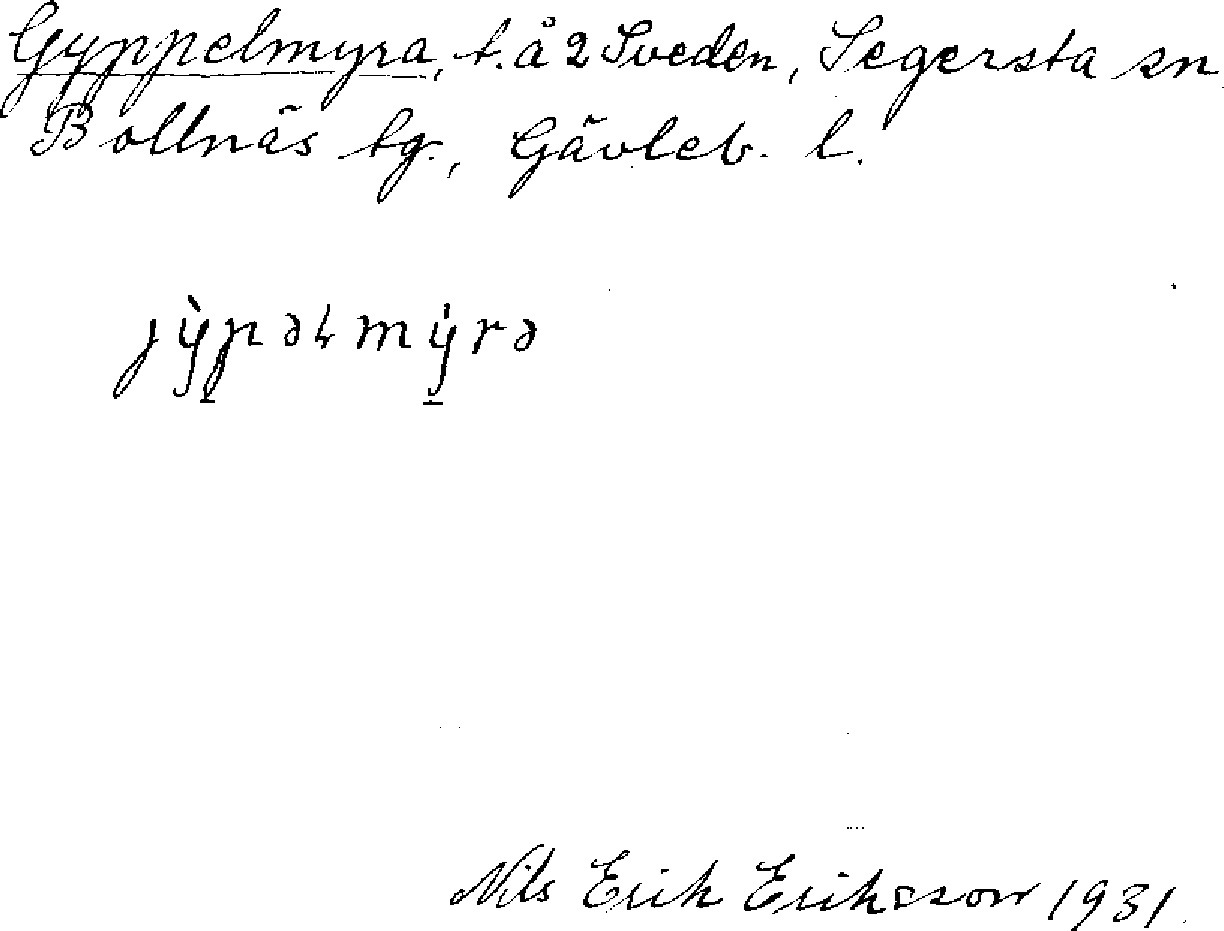 Gyppelmyra, t. å 2 Sveden, Segersta sn
Bollnäs tg., Gävleb. l.
jỳpəɫmy̍rə
Nils Erik Eriksson 1931.